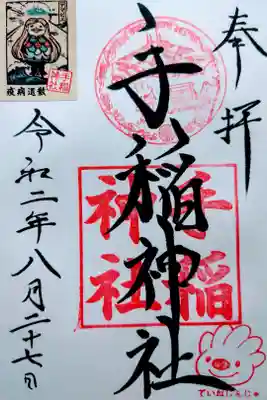 奉拝
手稲神社
手稲神社
令和二年八月二十七日
疫病退散
ていねじんじゃ